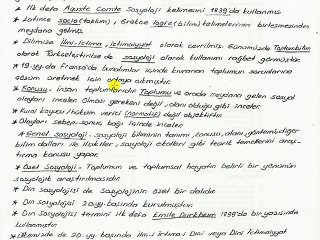 * İlk defa Auguste Comte Sosyoloji kelimesini 1839'da kullanmış
* Latince socio(toplum), Grekçe logie(bilim) kelimelerinin birleşmesinden
meydana gelmiş
* Dilimize İlm-i İctima, İctimaiyyat olarak çevrilmiş. Günümüzde Toplumbilim
olarak Türkçeleştirilse de sosyoloji olarak kullanımı rağbet görmüştür.
* 19.yy.da Fransa'da bunalımlar içinde kıvranan toplumun sorunlarına
çözüm üretmek için ortaya çıkmıştır.
* Konusu - İnsan toplumlarıdır Toplumu ve orada meydana gelen sosyal
olayları inceler Olması gerekeni değil, olan olduğu gibi inceler
* Kural koyucu/hüküm verici (normatif) değil objektiftir.
* Olayları sebep-sonuç bağı içinde inceler.
* Genel Sosyoloji - sosyoloji biliminin tanımı, konusu, alanı, yöntemi, diğer
bilim dalları ile ilişkiler, sosyoloji ekolleri gibi teorik temellerini araş-
tırma konusu yapan
* Özel Sosyoloji - Toplumun ve toplumsal hayatın belirli bir yönünün
sosyolojik araştırılmasıdır.
* Din Sosyolojisi de Sosyolojinin özel bir dalıdır
* Din sosyolojisi 20.yy. başında kurulmuştur.
* Din Sosyolojisi terimini ilk defa Emile Durkheim 1899'da bir yazısında
kullanmıştır.
* Ülkemizde de 20.yy. başında İlm-i İctima-i Dini veya Dini İctimaiyyat